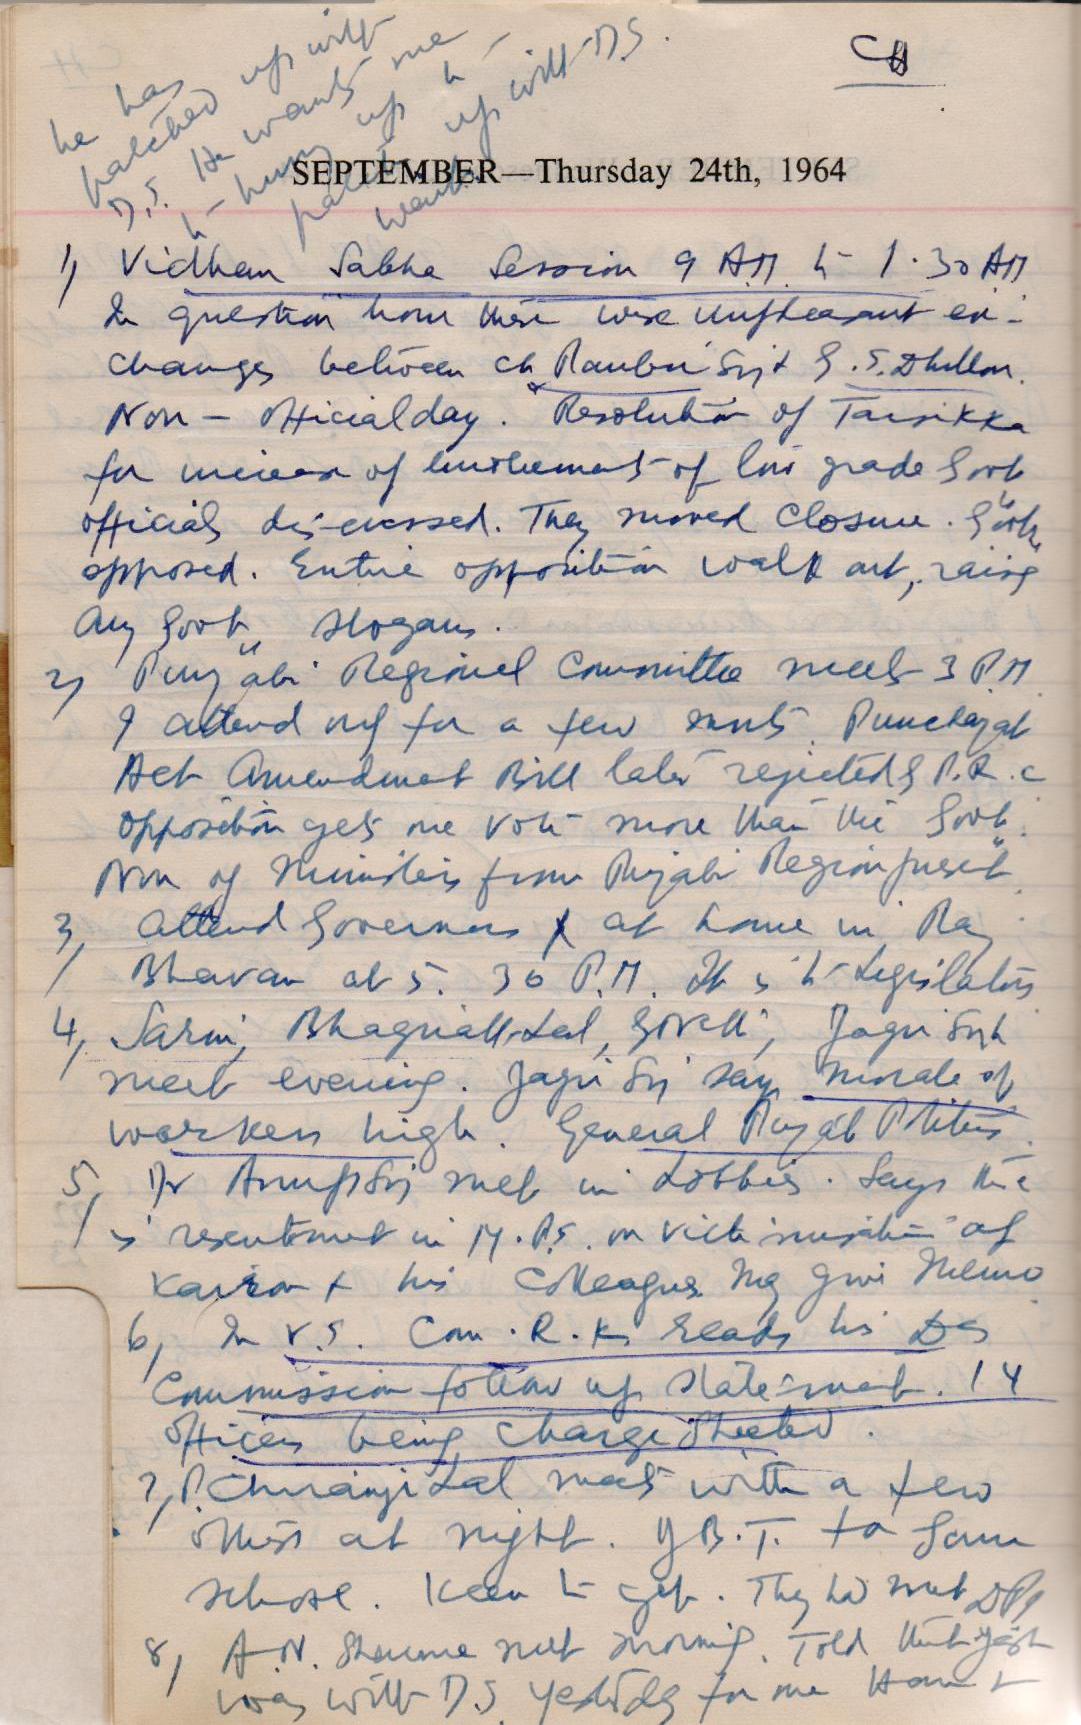 CH
he has
patched up with
D.S. He wants me
to hurry up to
patch up with D.S.
SEPTEMBER—Thursday 24th, 1964
1, Vidhan Sabha Session 9 AM to 1.30 AM
In question hour there were unpleasant ex-
changes between Ch Ranbir Singh & G.S. Dhillon.
Non-official day. Resolution of Tarsikka
for increase of emoluments of low grade Govt
officials discussed. They moved closure. Govt
opposed. Entire opposition walk out, raising
Any Govt slogans.
2, Punjabi Regional Committee meets 3 P.M
I attend only for a few mnts. Panchayat
Act Amendment Bill later rejected by P.R.C
Opposition gets one vote more than the Govt.
Non of Ministers from Punjabi Region present
3, Attend Governors at home in Raj
Bhavan at 5.30 P.M. It is to Legislators
4, Sarin, Bhagwati Lal, Jagir Singh
meet evening. Jagir Singh says morale of
workers high. General Punjab Politics.
5, Dr Anup Singh met in Lobbies. Says there
is resentment in M.Ps. on victimisation of
Kairon & his colleagues. May give Memo
6, In V.S. Com. R.K. reads his Das
Commission follow up statement. 14
officers being charge sheeted.
7, P. Chiranji Lal meets with a few
others at night. J.B.T. to
school. Keen to get. They had met DPI
8, A.N. Sharma met morning. Told that Yash
was with D.S. yesterday for one Hour &